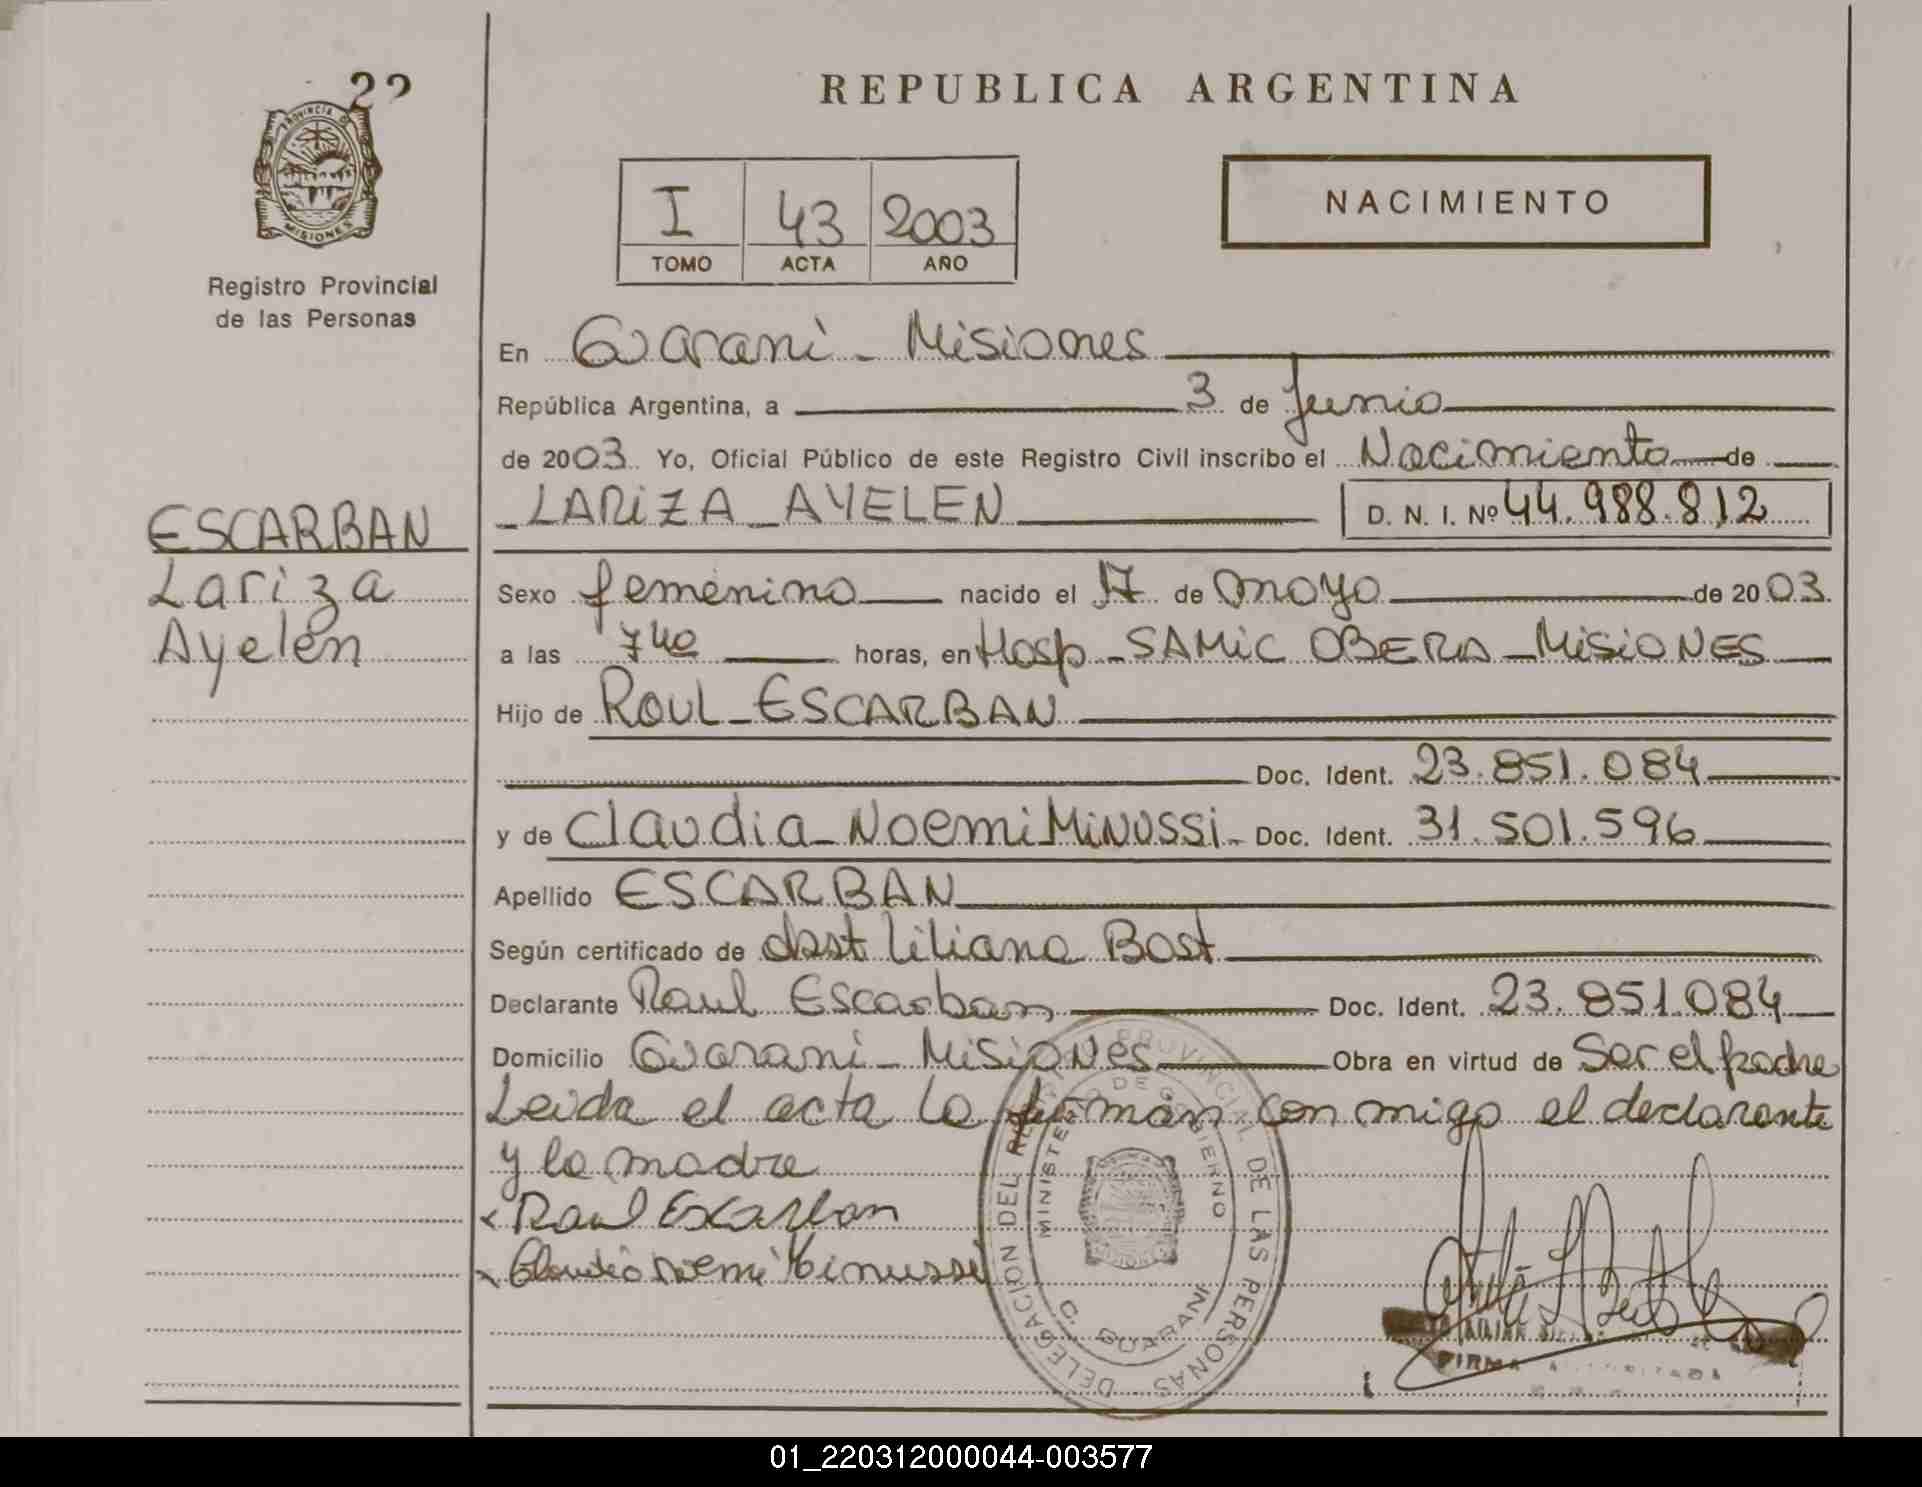 22
PROVINCIA DE
MISIONES
Registro Provincial
de las Personas
ESCARBAN
Lariza
Ayelén
REPUBLICA ARGENTINA
I 43 2003
TOMO ACTA AÑO
NACIMIENTO
En Guaraní - Misiones
República Argentina, a 3 de Junio
de 2003. Yo, Oficial Público de este Registro Civil inscribo el Nacimiento de
LARIZA AYELEN D. N. I. Nº 44.988.812
Sexo femenino nacido el 17 de mayo de 2003.
a las 740 horas, en Hosp - SAMIC OBERA - MISIONES
Hijo de ROUL - ESCARBAN
Doc. Ident. 23.851.084
y de Claudia - Noemi MINUSSI - Doc. Ident. 31.501.596
Apellido ESCARBAN
Según certificado de obst Liliana Bost
Declarante Raul Escarban Doc. Ident. 23.851.084
Domicilio Guaraní - Misiones Obra en virtud de Ser el padre
Leida el acta la firman con migo el declarante
y la madre
Raul Escarban
Claudia Noemi Minussi
DELEGACION DEL REGISTRO PROVINCIAL DE LAS PERSONAS
MINISTERIO DE GOBIERNO
C. GUARANI
MISIONES
FIRMA
01_220312000044-003577